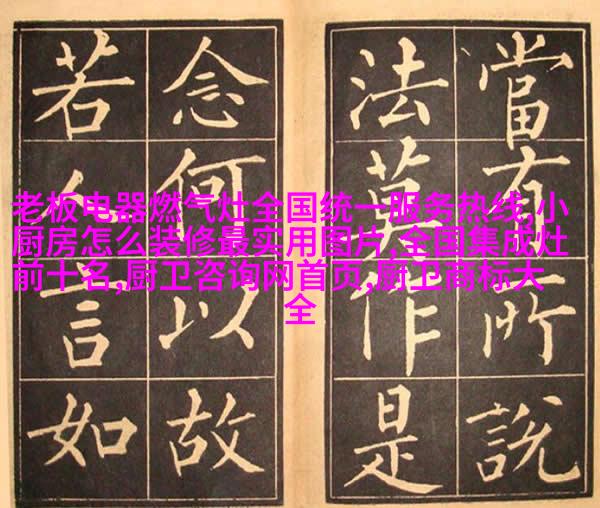 老板电器燃气灶全国统一服务热线,小
厨房怎么装修最实用图片,全国集成灶
前十名,厨卫咨询网首页,厨卫商标大
全
當有所說
法莫作是
念何以故
若人言如